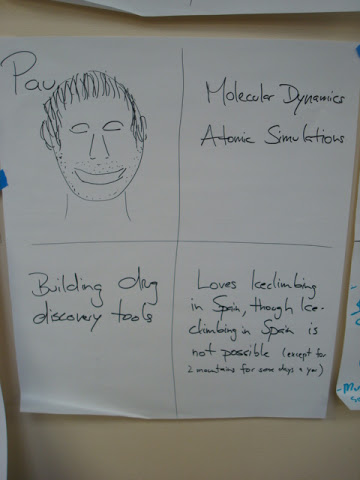 Pau
Molecular Dynamics
Atomic Simulations
Building drug
discovery tools
Loves Iceclimbing
in Spain, though Ice-
climbing in Spain is
not possible (except for
2 mountains for some days a year)